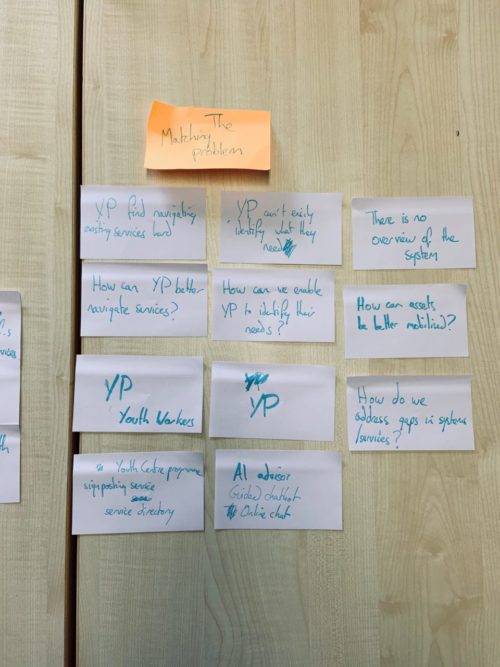 The
Matching
problem
YP find navigating
existing services hard
YP can't easily
identify what they
need
There is no
overview of the
system
How can YP better
navigate services?
How can we enable
YP to identify their
needs?
How can assets
be better mobilised?
YP
Youth Workers
YP
How do we
address gaps in systems
/services?
Youth Centre programme
signposting service
service directory
AI advisor
Guided chatbot
Online chat